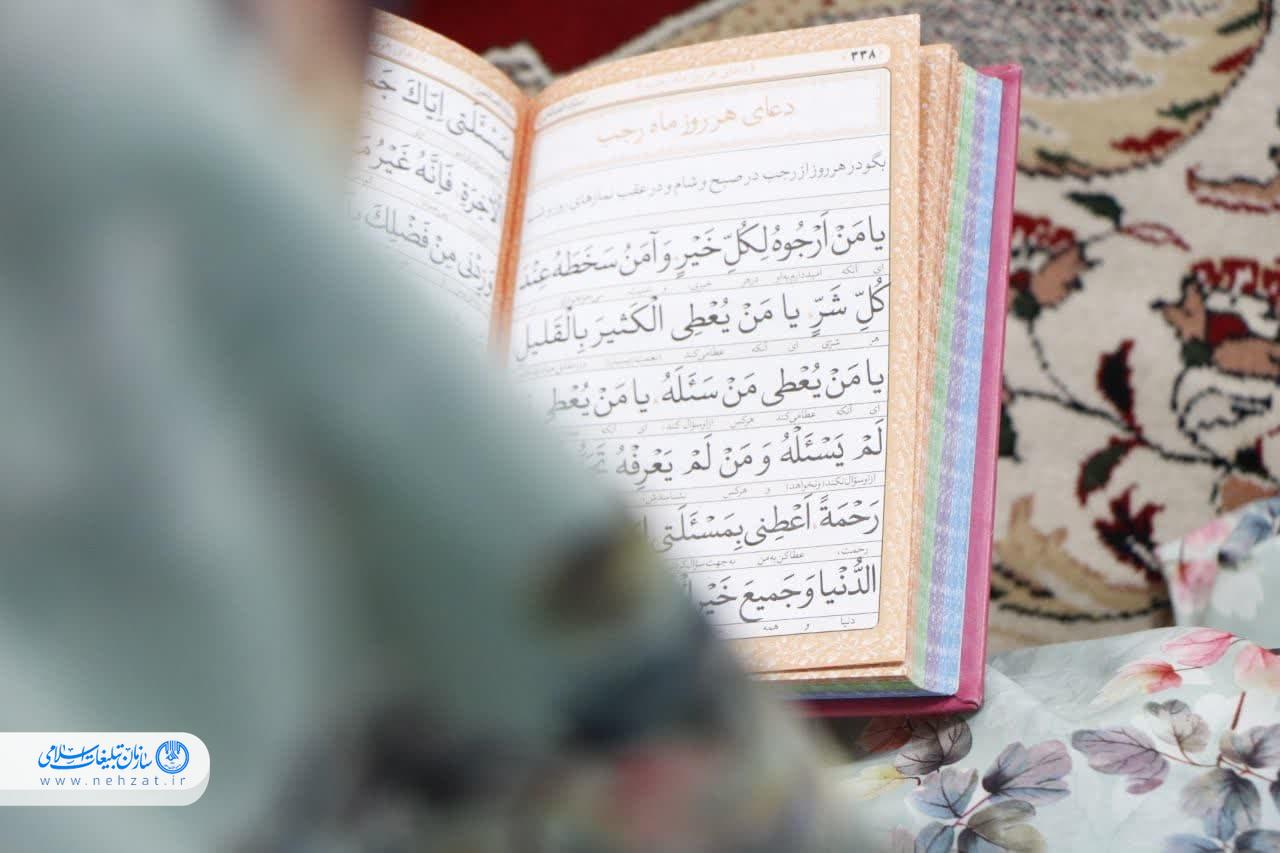 ۳۳۸
دعای هر روز ماه رجب
بگو در هر روز از رجب در صبح و شام و در عقب نمازهای روز و شب
يا مَنْ اَرْجُوهُ لِكُلِّ خَيْرٍ وَ آمَنُ سَخَطَهُ عِنْدَ
ای آنکه امیددارم به او در هر خیری و
كُلِّ شَرٍّ يا مَنْ يُعْطِى الْكَثيرَ بِالْقَليلِ
هر شرّی ای آنکه عطا می‌کند
يا مَنْ يُعْطى مَنْ سَئَلَهُ يا مَنْ يُعْطى
ای آنکه عطا می‌کند هرکس از او سؤال کند، ای آنکه
لَمْ يَسْئَلْهُ وَ مَنْ لَمْ يَعْرِفْهُ
از او سؤال نکند (و نخواهد) و هرکس نشناسدش،
رَحْمَةً اَعْطِنى بِمَسْئَلَتى
رحمت، عطا کن به من به جهت
الدُّنْيا وَ جَميعَ خَيْرِ
دنیا و همه
مَسْئَلَتى اِيّاكَ
الْآخِرَةِ فَاِنَّهُ غَيْرُ
زِدْنى مِنْ فَضْلِكَ
سازمان تبلیغات اسلامی
www.nehzat.ir